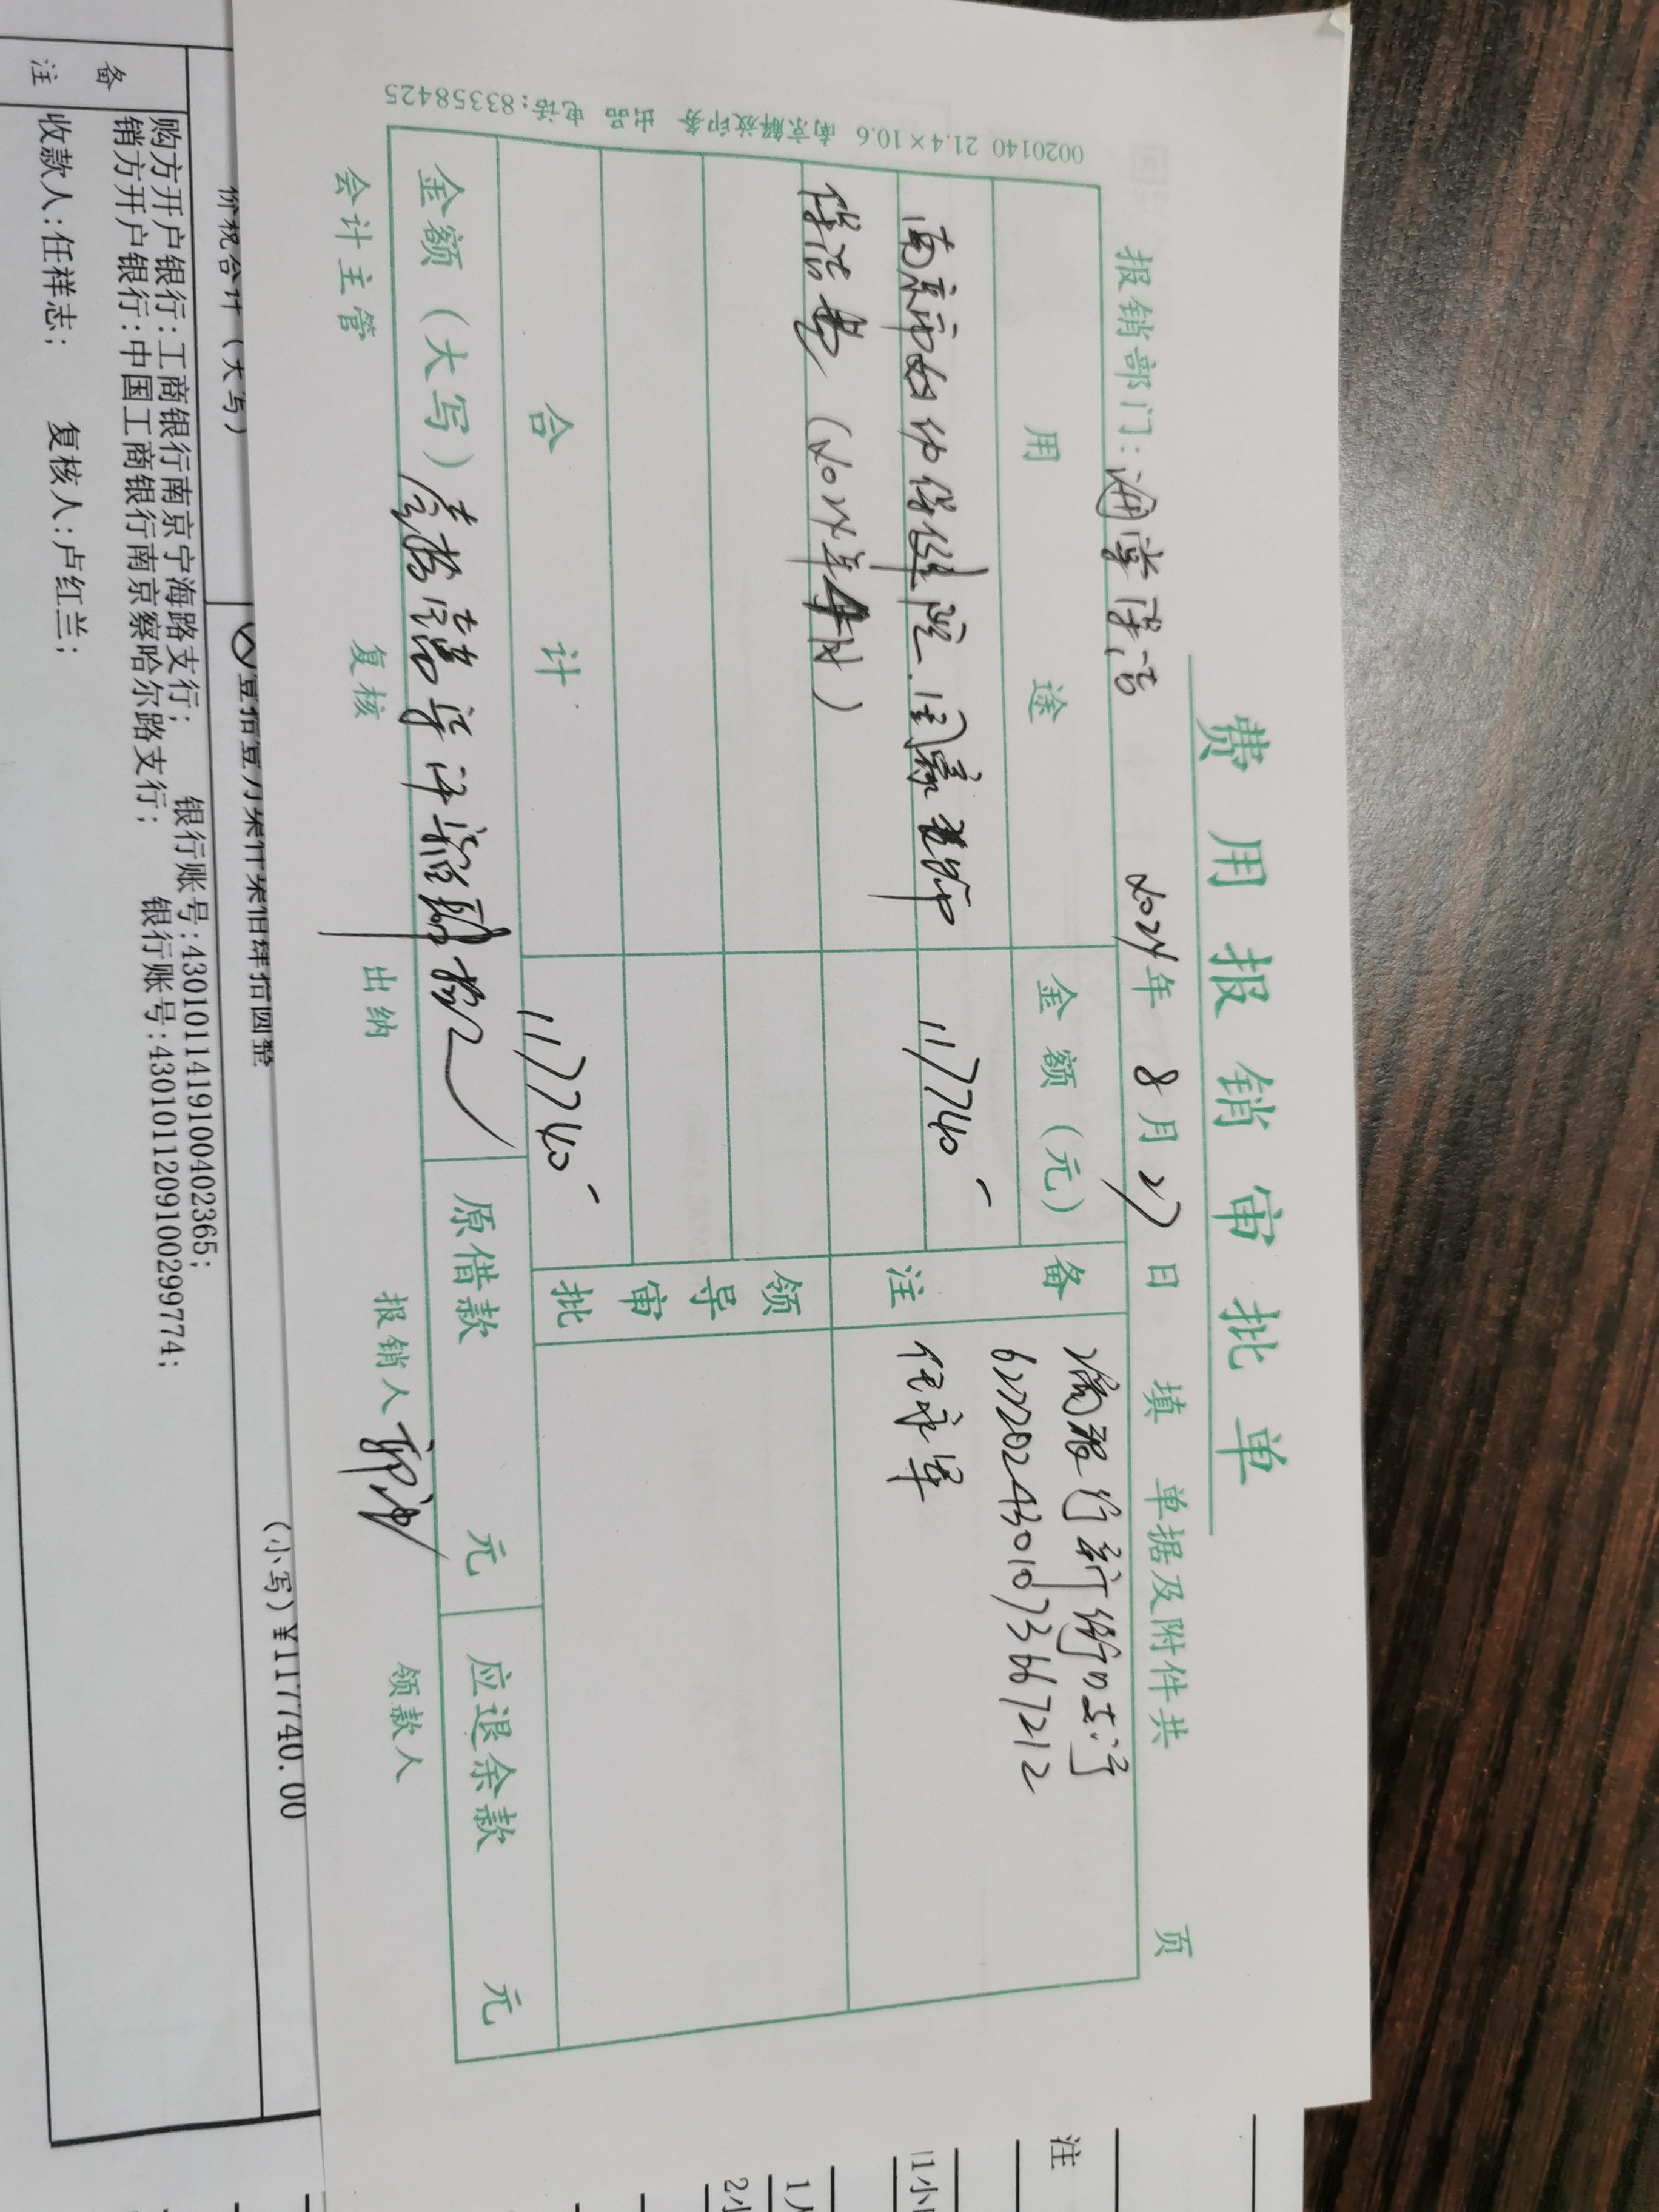 费用报销审批单
报销部门: 保洁 2024年 8月 27日 填 单据及附件共 页
用途 金额(元) 备注
南京市妇幼保健院 117740-
保洁费(2024年 )
6222024301073667212
任永军
领导审批
合计 117740-
金额(大写) 原借款 元 应退余款 元
会计主管 复核 出纳 报销人 领款人
0020140 21.4×10.6 南京解放印务 出品 电话:83358425
价税合计(大写) 壹拾壹万柒仟柒佰肆拾圆整 (小写)¥117740.00
备注
购方开户银行:工商银行南京宁海路支行; 银行账号:4301011419100402365;
销方开户银行:中国工商银行南京察哈尔路支行; 银行账号:4301011209100299774;
收款人:任祥志; 复核人:卢红兰;
注